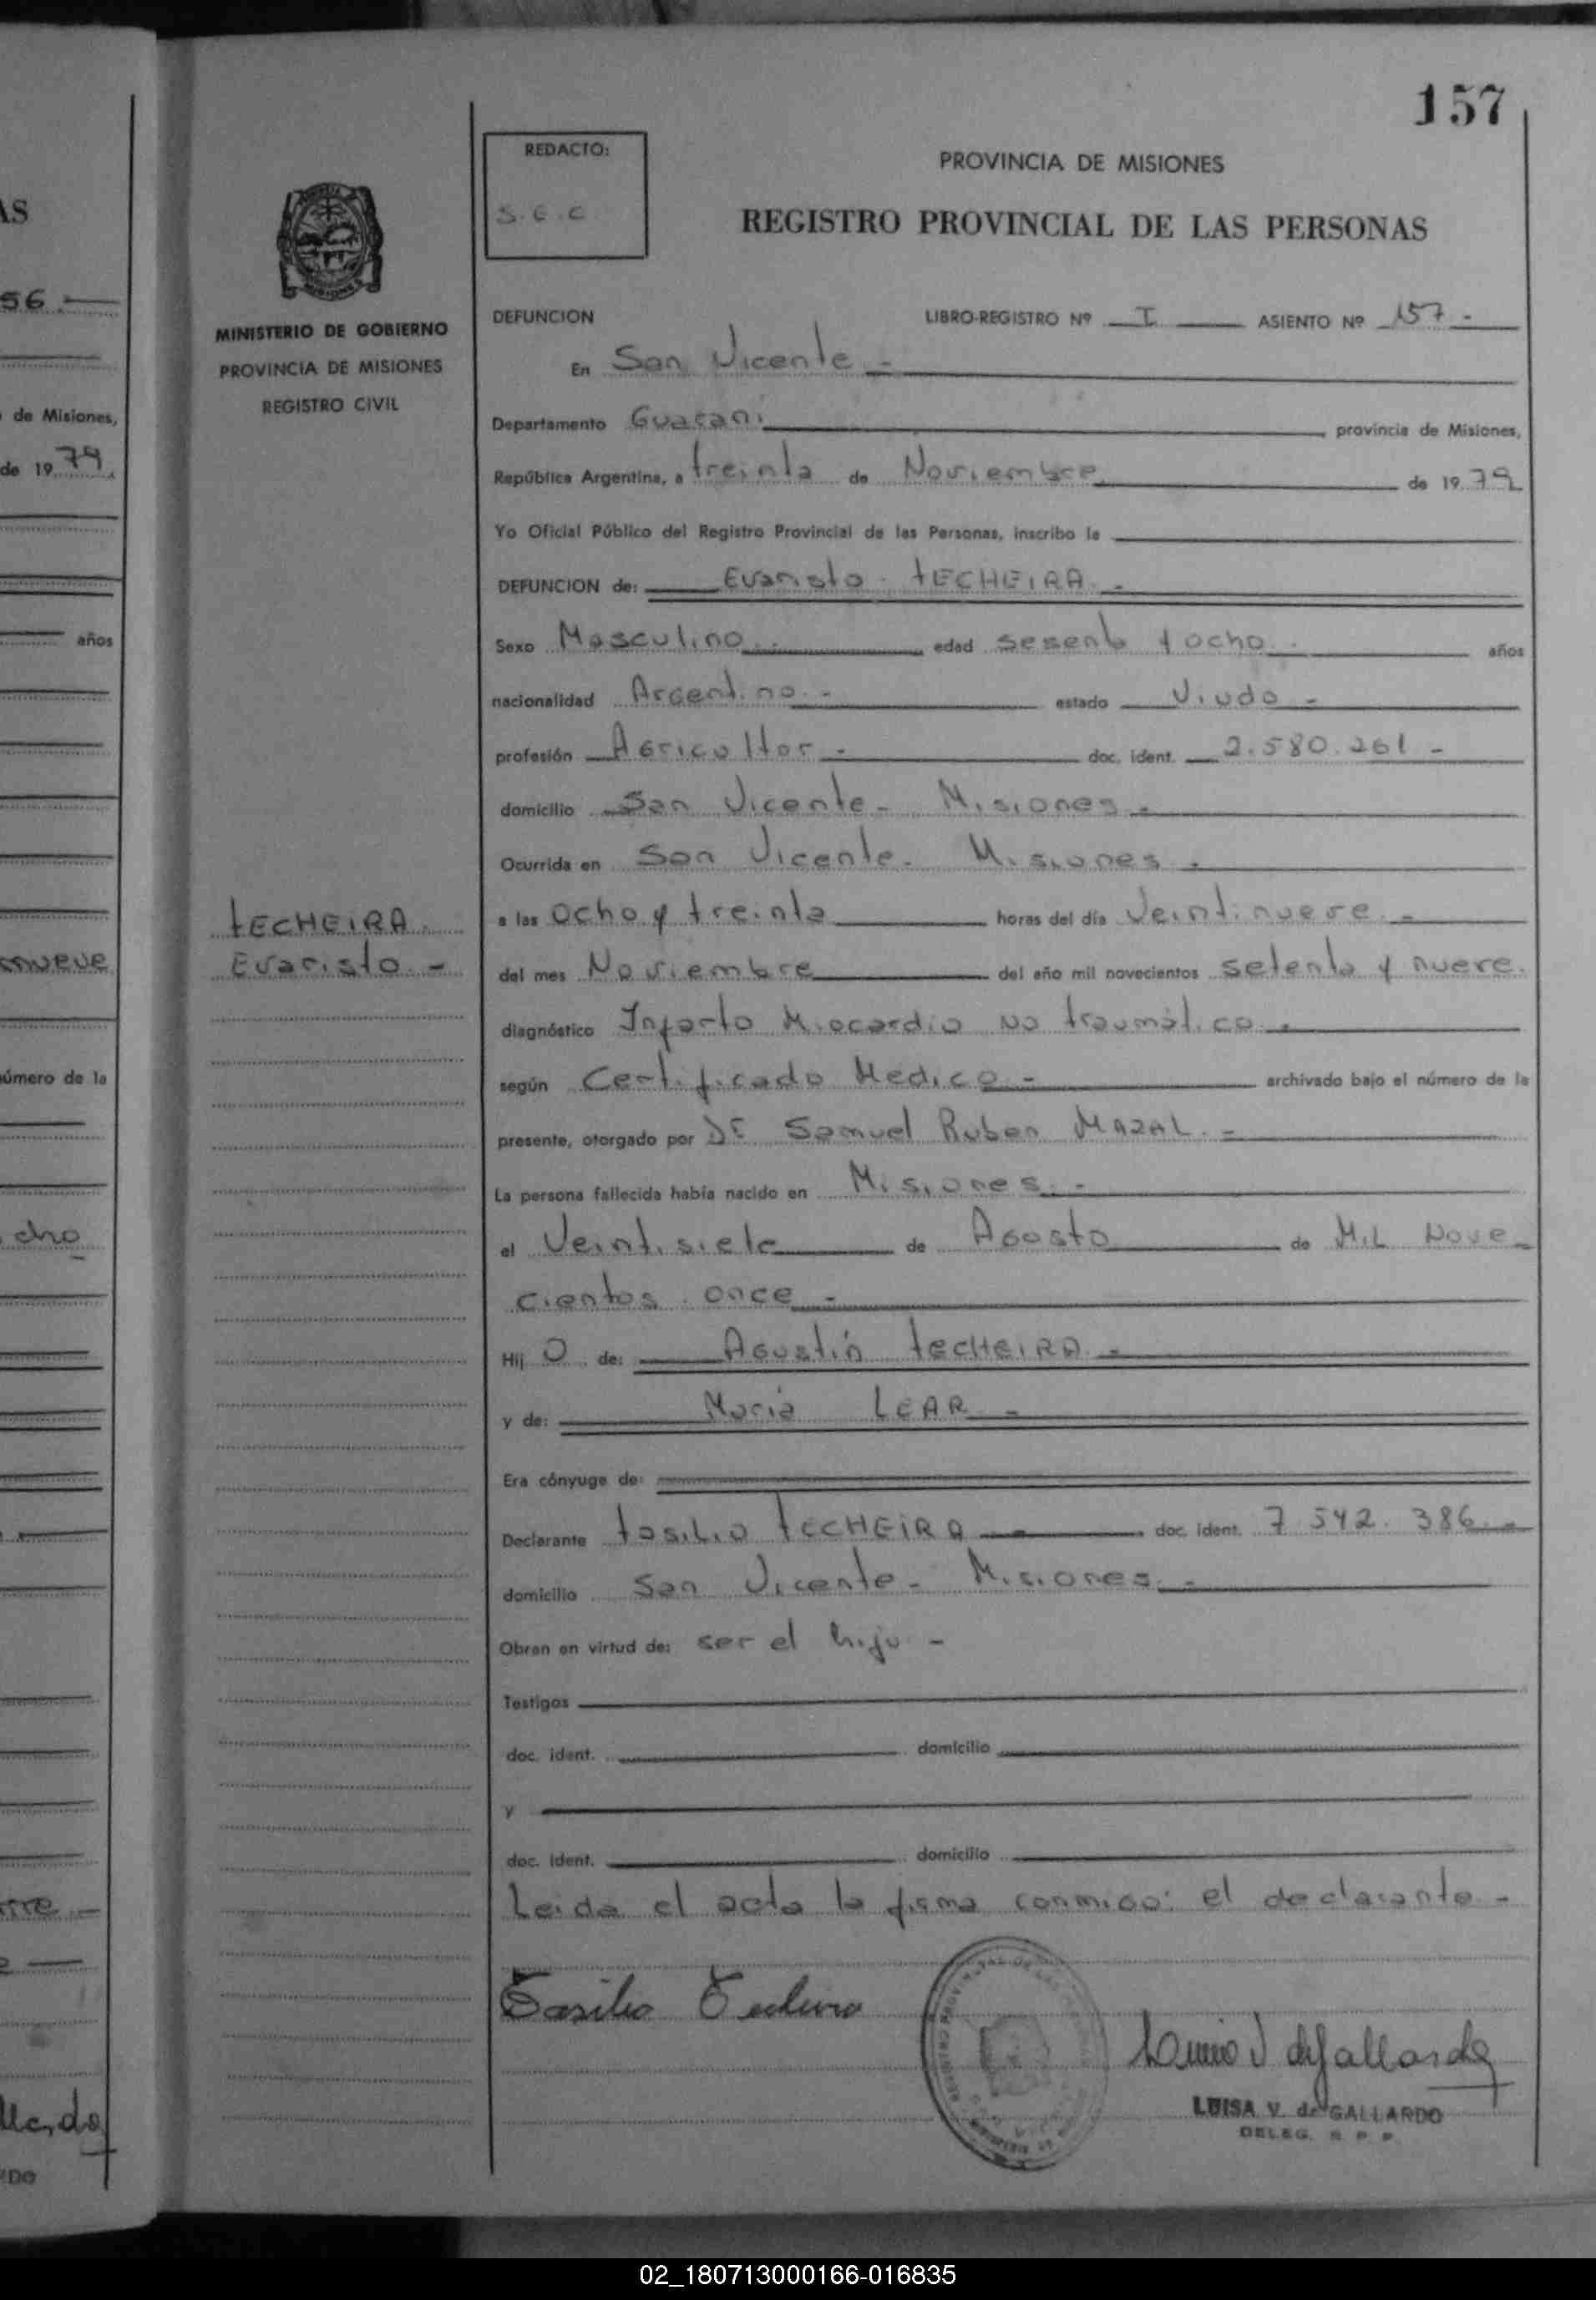 157
AS
56.
de Misiones,
de 1979
años
nueve
número de la
cho
MINISTERIO DE GOBIERNO
PROVINCIA DE MISIONES
REGISTRO CIVIL
TECHEIRA.
Evaristo -
REDACTO:
S. C. C
PROVINCIA DE MISIONES
REGISTRO PROVINCIAL DE LAS PERSONAS
DEFUNCION LIBRO-REGISTRO Nº I ASIENTO Nº 157 -
En San Vicente -
Departamento Guarani provincia de Misiones,
República Argentina, a treinta de Noviembre de 1979
Yo Oficial Público del Registro Provincial de las Personas, inscribo la
DEFUNCION de: Evaristo TECHEIRA. -
Sexo Masculino. edad sesenta y ocho. años
nacionalidad Argentino. - estado Viudo -
profesión Agricultor - doc. ident. 2.580.261 -
domicilio San Vicente - Misiones -
Ocurrida en San Vicente. Misiones -
a las ocho y treinta horas del día Veintinueve. -
del mes Noviembre del año mil novecientos setenta y nueve.
diagnóstico Infarto Miocardio no traumático -
según Certificado Medico - archivado bajo el número de la
presente, otorgado por Dr Samuel Ruben MAZAL. -
La persona fallecida había nacido en Misiones. -
el Veintisiete de Agosto de Mil Nove-
cientos once -
Hij o de: Agustín TECHEIRA -
y de: María LEAR -
Era cónyuge de:
Declarante Tasilio TECHEIRA - doc. ident. 7.542.386. -
domicilio San Vicente - Misiones. -
Obran en virtud de: ser el hijo -
Testigos
doc. ident. domicilio
y
doc. ident. domicilio
Leida el acta la firma conmigo: el declarante -
Tasilio Techeira
LUISA V. de GALLARDO
DELEG. R. P. P.
02_180713000166-016835